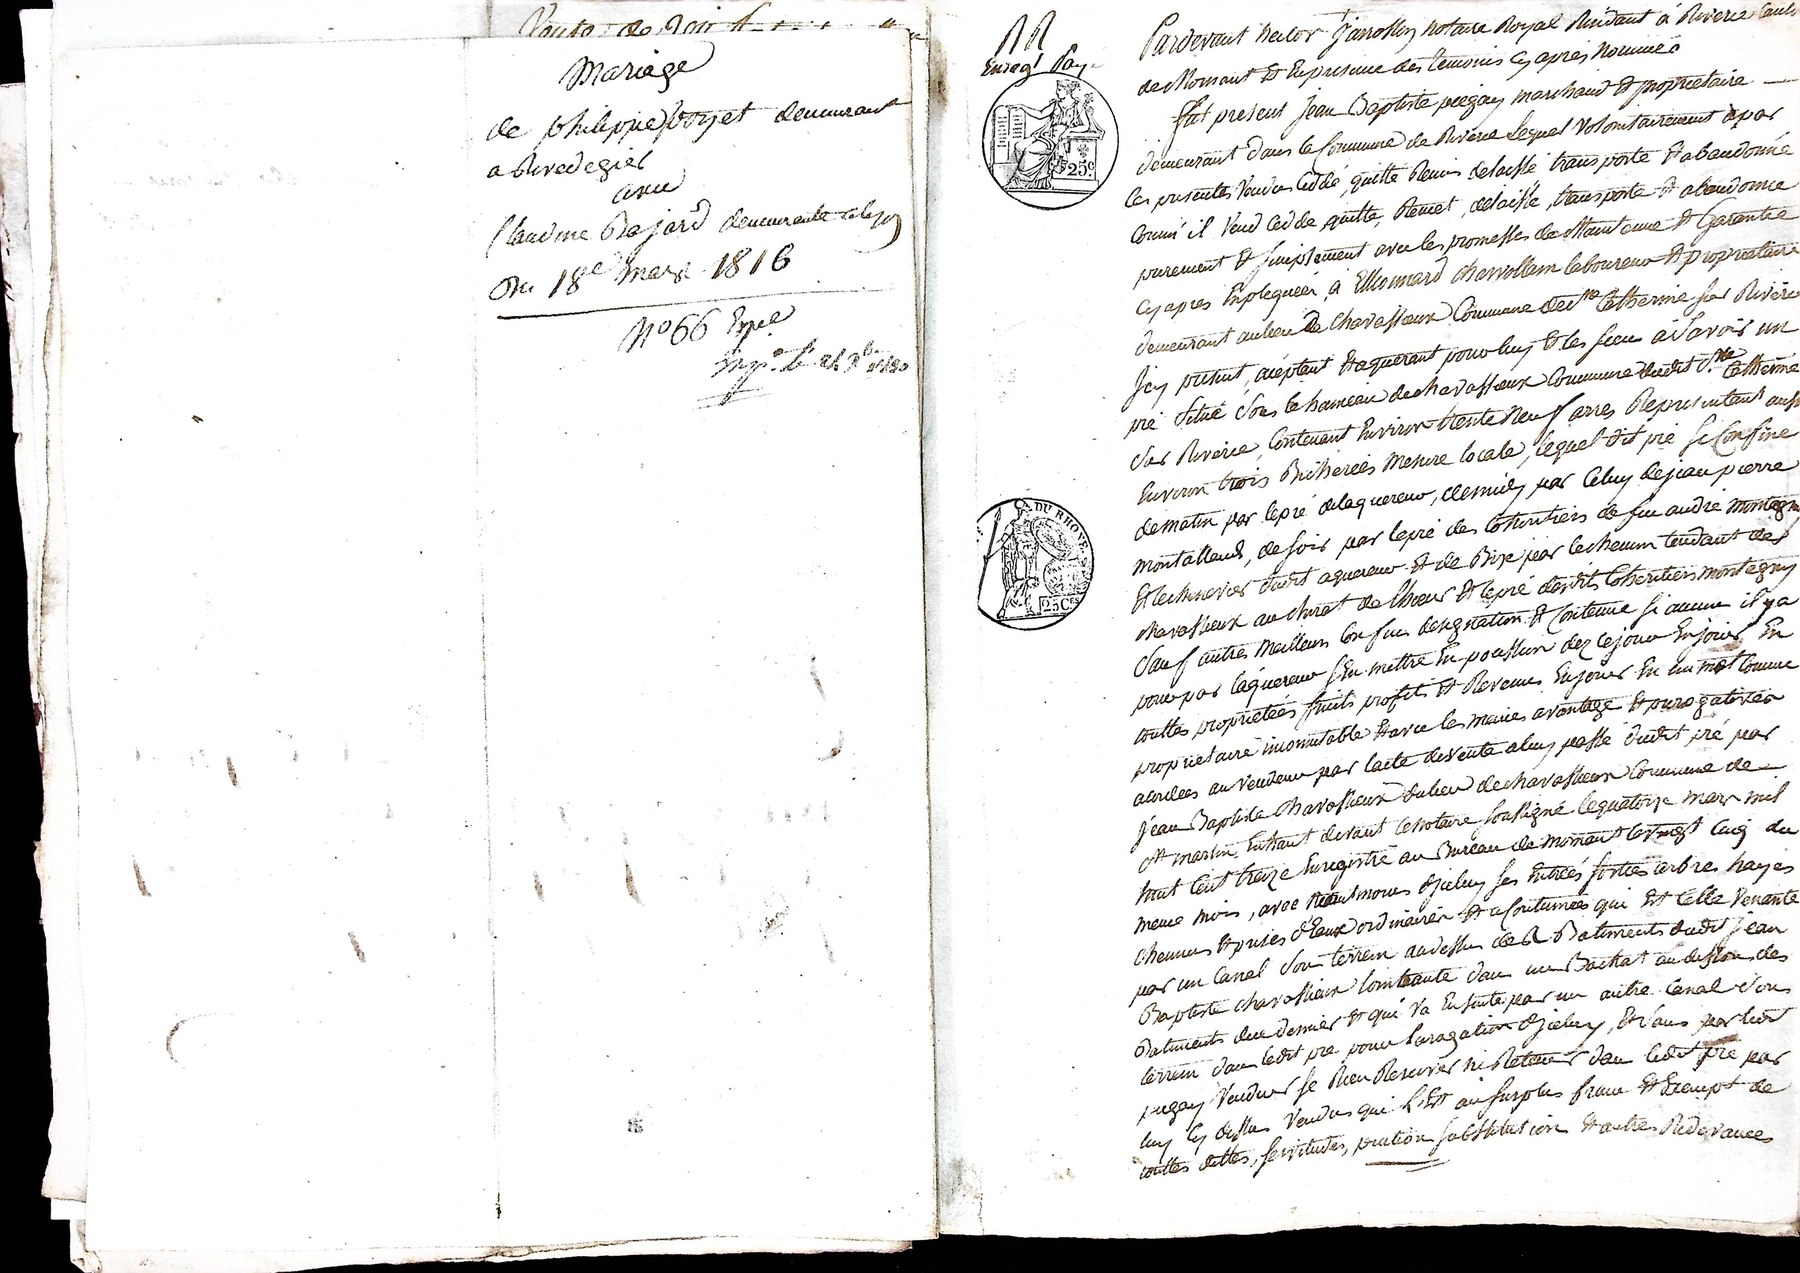 Mariage
de philippe voyet demeurant
a Rivedegier
avec
Claudine Bajard demeurante
Du 18e mars 1816
No 66 Exp.e
RR
Enreg.t Pay
25c
DU RHONE
25Ces
Pardevant hector janossin notaire Royal Residant à Riverie
de Mornant Et En presence des temoins cy apres nommés
fut present jean Baptiste pugay marchand Et propriétaire
demeurant dans le Commune de Riverie Lequel Volontairement a par
Ces presentes Vendus Ceddé, quitte Remis delaissé transporte Et abandonné
Comme il Vend Cedde quitte, Remet, delaisse, transporte Et abandonne
purement Et simplement avec les promesses de Maintenue Et Garantie
cy apres Expliquéés, à Ennemond charvollain laboureur Et propriétaire
demeurant au lieu de chavassieux Commune de Ste Catherine sur Riverie
Icy present, aceptant Et aquerant pour luy Et les siens a Savoir un
pré Situé Sous le hameau de chavassieux Commune dudit Ste Catherine
Sur Riverie, Contenant Environ trente Neuf arres Representant
Environ trois Bicherées Mesure locale, lequel dit pré se Confine
de matin par le pré de laquereur, de midy par Celuy de jean pierre
montalland, de soir par le pré des Cohéritiers de feu andré montagny
Et le chnevier dudit aquereur Et de Bize par le chemin tendant de
chavassieux au Et le pré desdits Coheritiers montagny
Sauf autres Meilleurs Confins designation Et Contenue si aucune il y a
pour par laquereur s'En mettre En possession dez ce jour En jouir En
touttes propriétées fruits profits Et Revenus En jouir En un mot Comme
propriétaire incommutable Et avec les memes avantage Et
au vendeur par lacte de vente a luy passé dudit pré par
jean Baptiste chavassieux du lieu de chavassieux Commune de
St martin En haut devant le notaire soussigné le quatorze mars mil
huit Cent treize Enregistré au Bureau de Mornant le vingt Cinq du
meme mois, avec d'jceluy ses Entrées sorties arbres hayes
chemins Et prises d'Eaux ordinaires Et acoutumées qui Est Celle Venante
par un Canal Sou terrein au dessus des Batiments dudit jean
Baptiste chavassieux tombante dan un Bachat au dessous des
Batiments du dernier Et qui va Ensuite par un autre Canal Sous
terrein dans ledit pré pour d'jceluy, Et Sans par ledit
pugay Vendeur se Rien Reserver ni Retenir dan ledit pré par
luy cy dessus Vendus qui Est au surplus franc Et Exempt de
touttes dettes, servitudes, substitution Et autres Redevances